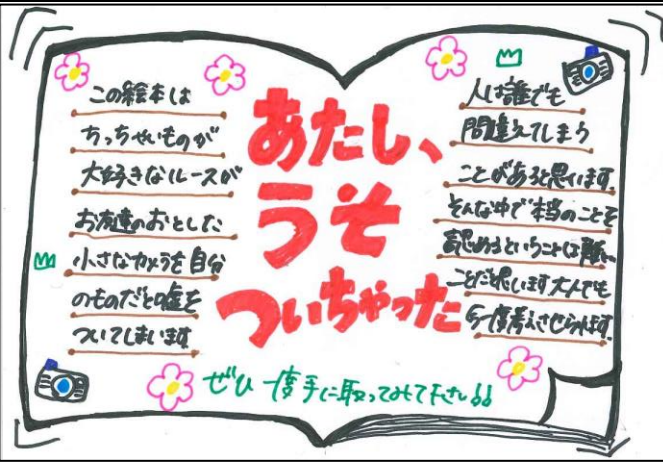 この絵本は
ちっちゃいものが
大好きなルースが
お友達のおとした
小さなカメラを自分
のものだと嘘を
ついてしまいます
あたし、
うそ
ついちゃった
人は誰でも
間違えてしまう
ことがあると思います
そんな中で本当のことを
認めるということは難しい
ことだと思います大人でも
今一度考えさせられます。
ぜひ一度手に取ってみて下さい